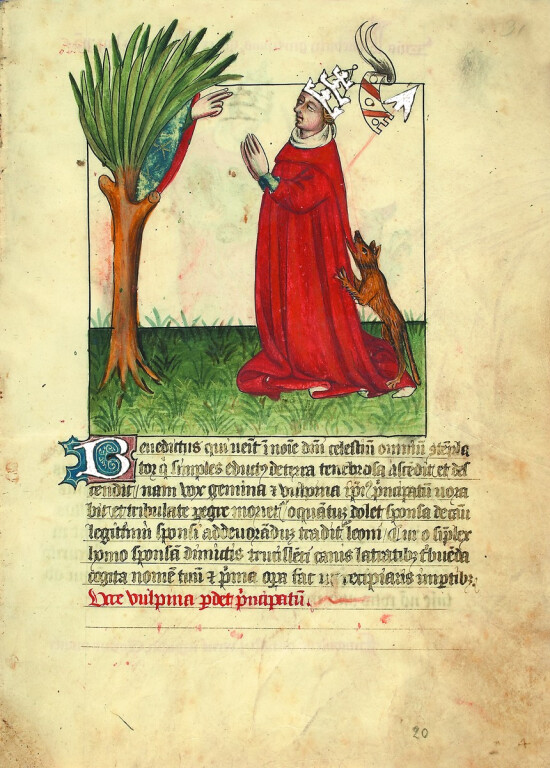 Benedictus qui venit i noie dni celestiu omniu gtepla
tor q simplex eductus de terra tenebrosa ascedit et des
cendit nam vox gemina & vulpina pncipatum uora
bit et tribulatus pegre moriet o quatum dolet sponsa de casu
legittimi sponsi ad deuoradum tradit leoni Cur o simplex
homo sponsam dimittis canibus latratibus tbueda
cogita nome tuu & pma opa fac ut recipiaris
Ucce vulpina pdet pncipatum.
20